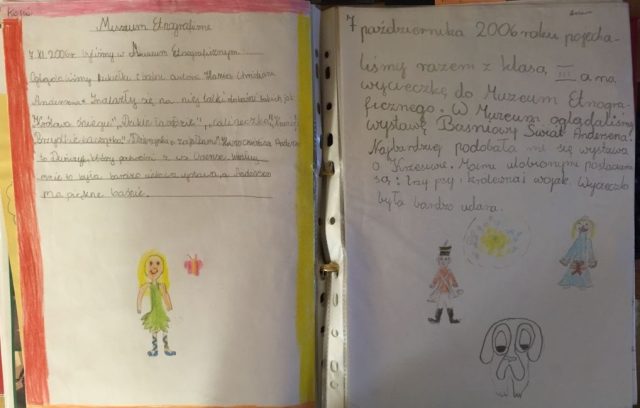 Kasia
Muzeum Etnograficzne
7.XI.2006r. byliśmy w Muzeum Etnograficznym.
Oglądaliśmy kukiełki z baśni autora Hansa Christiana
Andersena. Znalazły się na niej lalki
"Królowa Śniegu", "Dzikie łabędzie", "Calineczka"
"Brzydkie kaczątko" "Dziewczynka z zapałkami"
to Duńczyk, który pochodzi z
mnie to była bardzo ciekawa wystawa, a Andersen
ma piękne baśnie.
7 października 2006 roku pojecha-
liśmy razem z klasą III a na
wycieczkę do Muzeum Etnogra-
ficznego. W Muzeum oglądaliśmy
wystawę Baśniowy Świat Andersena.
Najbardziej podobała mi się wystawa
o Krzesiwie. Moimi ulubionymi postaciami
są: trzy psy, królewna i wojak. Wycieczka
była bardzo udana.